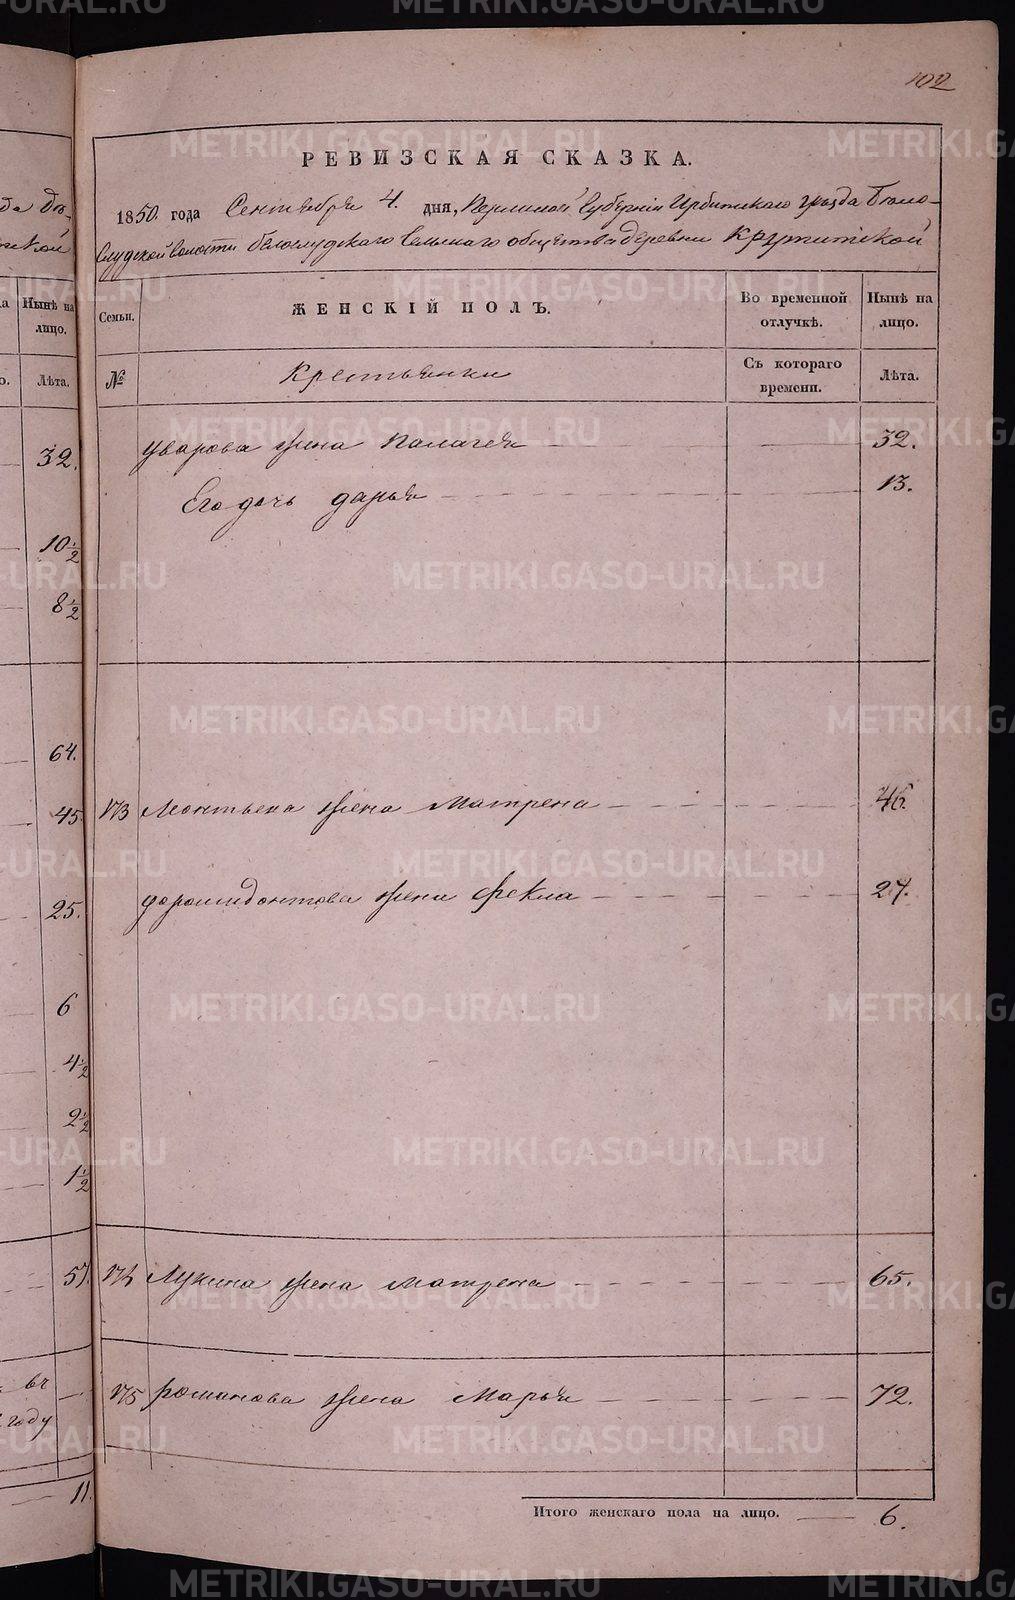 102
РЕВИЗСКАЯ СКАЗКА.
1850. года Сентября 4. дня, Пермской Губерніи Ирбитскаго уезда Бело-
слудской волости белослудскаго Сельскаго общества деревни
Семьи.
ЖЕНСКІЙ ПОЛЪ.
Во временной отлучкѣ.
Нынѣ на лицо.
№
Крестьянки
Съ котораго времени.
Лѣта.
Уварова жена Палагея 32.
Его дочь дарья 13.
173 Леонтьева жена Матрена 46.
доримидонтова жена Фекла 27.
174 Лукина жена матрена 65.
175 романова жена Марья 72.
Итого женскаго пола на лицо. 6.
Нынѣ на лицо.
Лѣта.
32.
10 1/2
8 1/2
64.
45.
25.
6
4 1/2
2 1/2
1 1/2
57.
въ
году
11.
METRIKI.GASO-URAL.RU